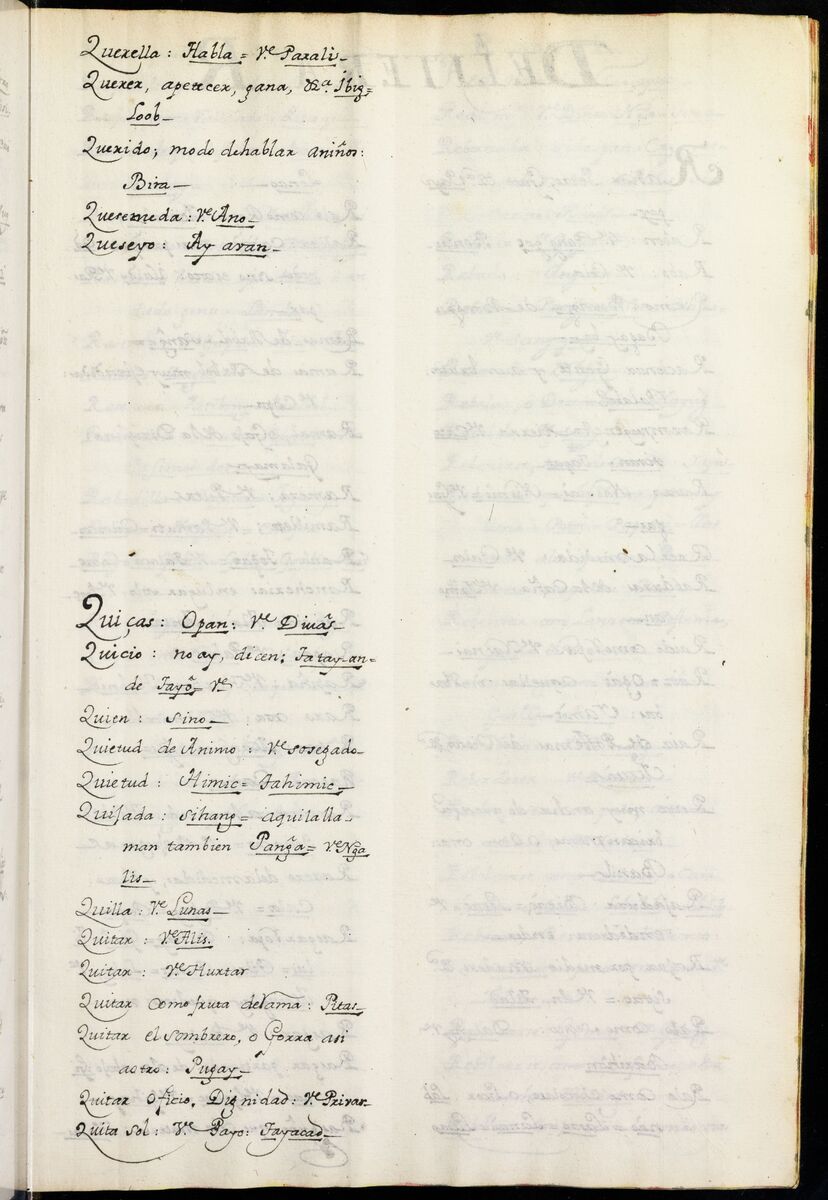 Querella: Habla = Ve. Paxalis_
Querer, apetecer, gana, &a. Ibig=
Loob_
Querido; modo de hablar aniños:
Bira_
Quesemeda: Ve. Ano_
Queseyo: Ay avan_
Quiças: Opan: Ve. Diuãs_
Quicio: no ay, dicen; Tatayan=
de Tayõ= Ve
Quien: Sino_
Quietud de Animo: Ve. sosegado_
Quietud: Himic= Tahimic_
Quijada: Sihang= aquilalla
man tambien Pang̃a= Ve. Nga
lis_
Quilla: Ve. Lunas_
Quitar: Ve. Alis.
Quitar: Ve. Hurtar
Quitar como fruta delrama: Pitas_
Quitar el sombrero, o Gorra asi
aotro: Pugay_
Quitar Oficio, Dignidad: Ve. Privar_
Quita sol: Ve. Payo: Tayacad_